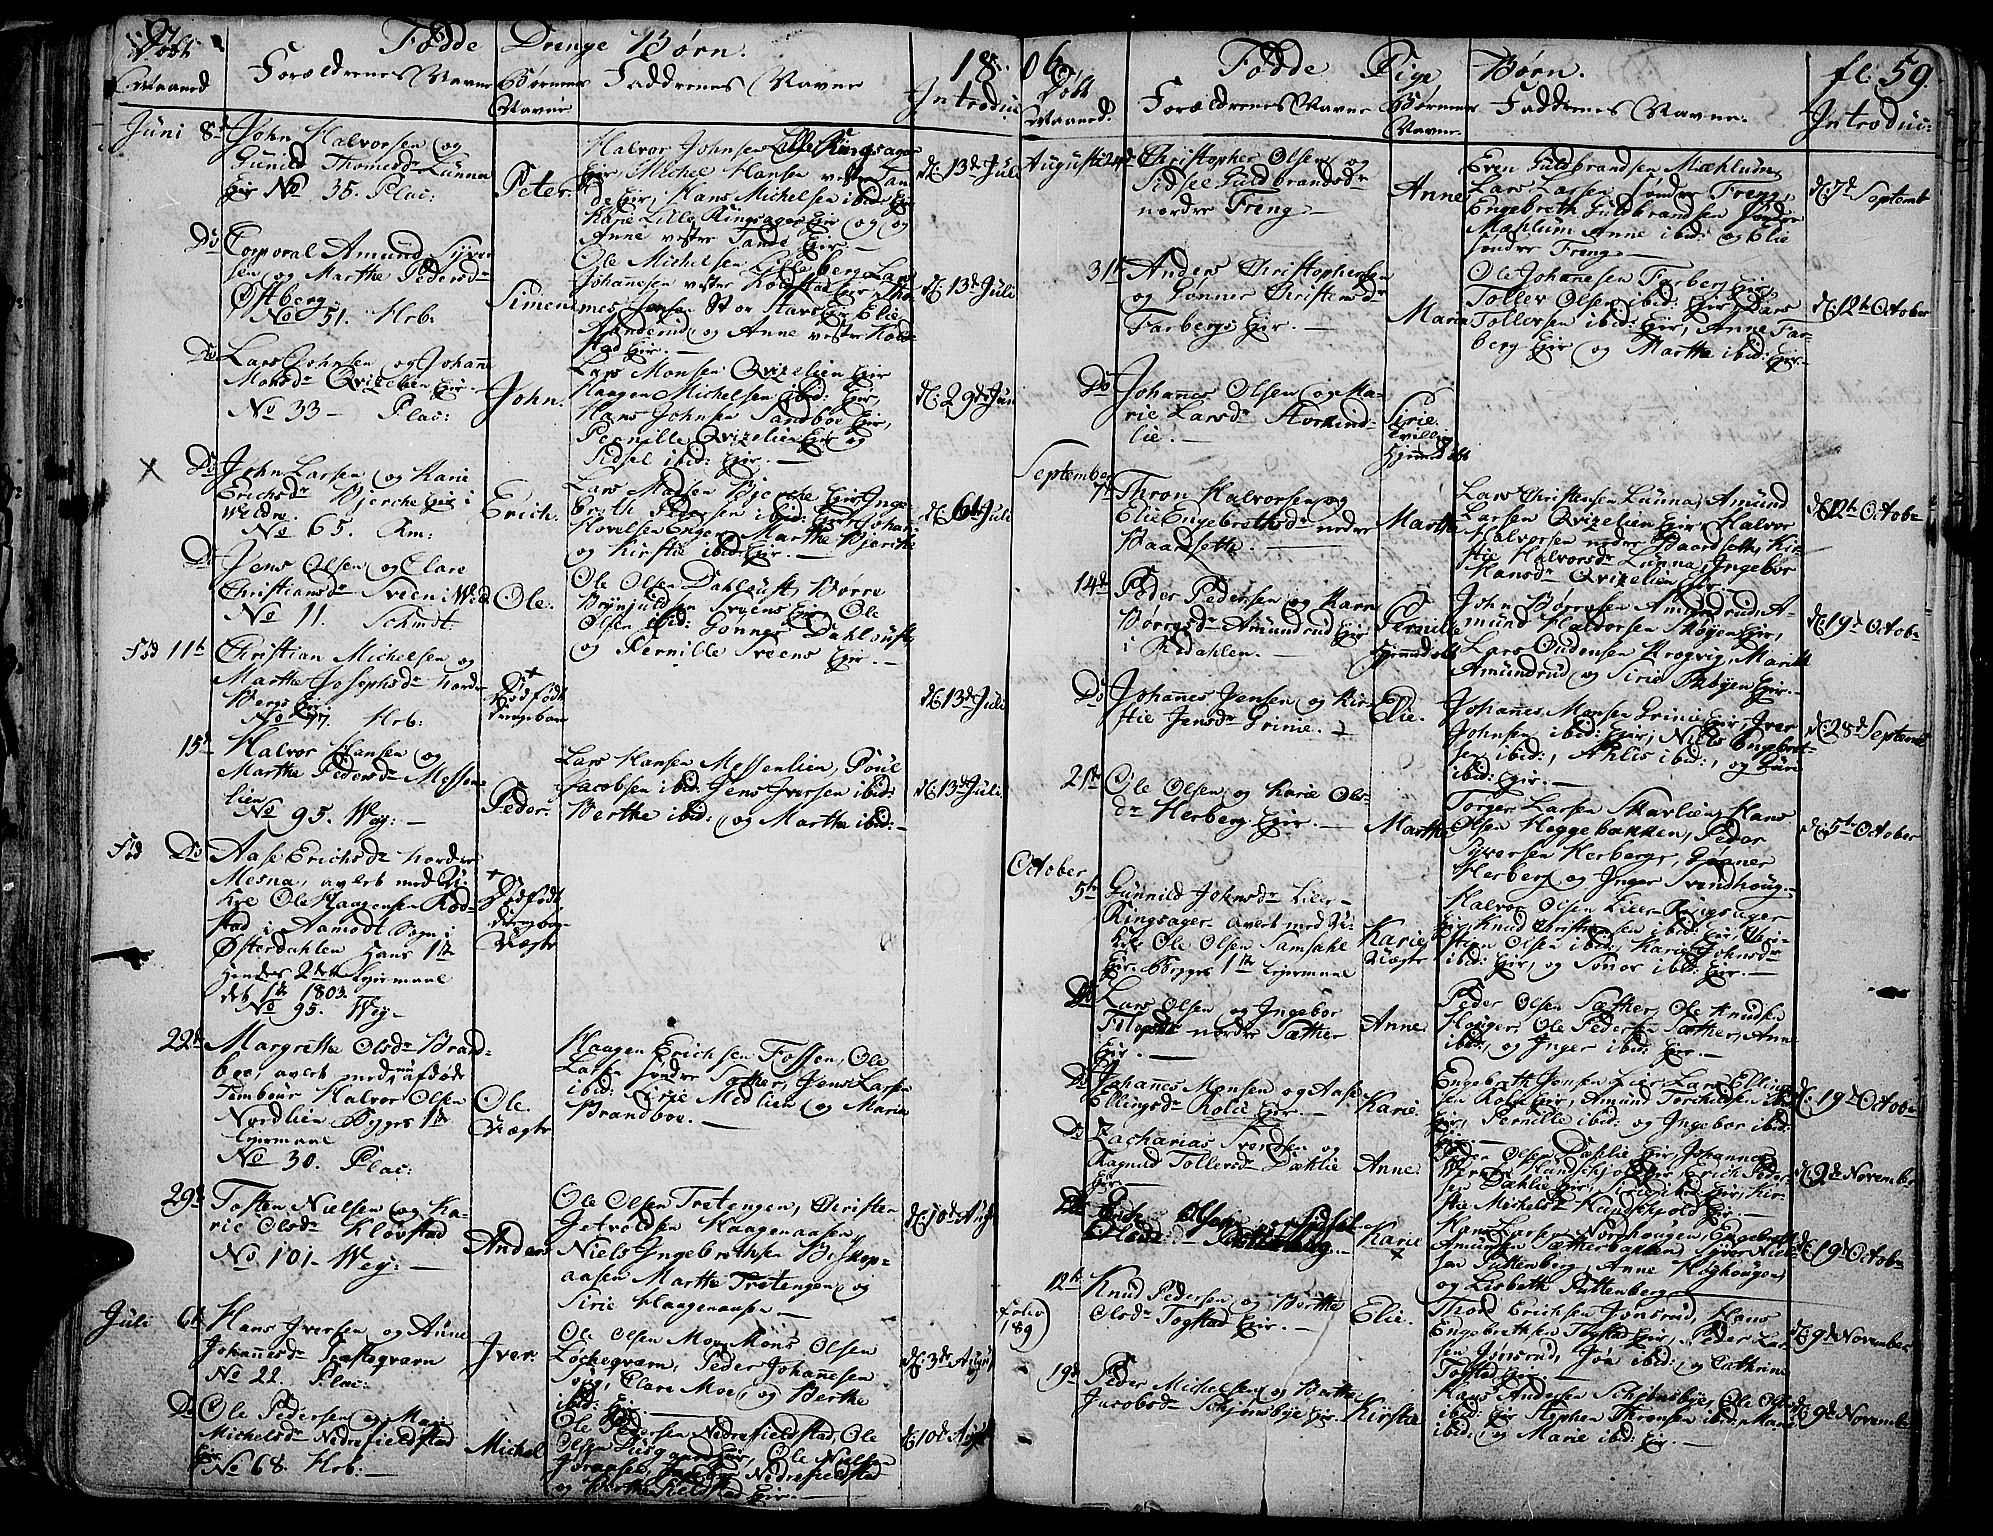 Födde Drenge Börn.
18
Döbt
Maaned
Forældrenes Navne
Börnenes
Navne
Faddrenes Navne
Introduc:
Juni 8d
John Halvorsen og
Gunild Thomesdr Lunna
Ejr No 35. Plac:
Peter.
Halvor Johnsen Lille Ringsager
Ejr, Michel Hansen vestre Tan
de Ejr, Hans Michelsen ibid: Ejr
Karie Lille Ringsager Ejr og
Anne vestre Tande Ejr.
d: 13d Juli
Do
Corporal Amund Syver
sen og Marthe Pedersdr
Ostberg
No 51. Hrb:
Simen
Ole Michelsen Lilleberg Lars
Johannesen vestre Kolstad Ejr
Jensen Stor Hans Ejr Elie
og Anne vestre Kol
stad Ejr.
d: 13d Juli
Do
Lars Johnsen og Johanne
Monsdr Qvizelien Ejr
No 33 - Plac:
John.
Lars Monsen Qvizelien Ejr
Haagen Michelsen ibid: Ejr,
Hans Johnsen Sandboe Ejr,
Pernille Qvizelien Ejr og
Sidsel ibid: Ejr.
d: 29d Juni
Do
John Larsen og Karie
Erichsdr Bjerche Ejr i
Veldre
No 65. Rm:
Erich.
Lars Madsen Bjerche Ejr Inge
breth Pedersen ibid: Ejr Johan
Hovelsen Enger, Marthe Bjerche
og Kirstie ibid: Ejr.
d: 6t Juli
Do
Jens Olsen og Clare
Christiansdr Sveen i Veld
No 11. Schmdt.
Ole.
Ole Olsen Dahlqust, Börre
Brynjuldsen Sveens Ejr Ole
Olsen ibid: Gönner Dahlqust
og Pernille Sveens Ejr.
Föd 11t
Christian Michelsen og
Marthe Josephsdr Nordre
Berg Ejr
No 97. Hrb:
Dödfödt
Drengebarn
d: 13d Juli
15d
Halvor Hansen og
Marthe Pedersdr Messen
lien
No 95. Wey:
Peder.
Lars Hansen Messenlien, Poul
Jacobsen ibid: Jens Iversen ibid:
Berthe ibid: og Marthe ibid:
d: 13d Juli
Föd Do
Aase Erichsdr Nordre
Mesna, avlet med Un
Kel Ole Haagensen Röd
stad i Aamodt Sogn i
Österdahlen Hans 1te
Hendes 2det Lejermaal
det 1te 1803.
No 95. Wey.
Dödfödt
Drengebarn
Uægte
22d
Margrethe Olsdr Brand
boe avlet med nu afdöde
Tambour Halvor Olsen
Nordlien Bygges 1te
Lejermaal
No 30. Plac:
Ole.
Uægte
Haagen Erichsen Fossen, Ole
Larsen söndre Sæther, Jens Larsen
ibid: Sirie Medlien og Marie
Brandboe.
29d
Tosten Nielsen og Ka-
rie Olsdr Klövstad
No 101. Wey:
Anders
Ole Olsen Tretengen, Christen
Haagenaasen
Niels Ingebrethsen Biskop-
aasen Marthe Tretengen og
Sirie Haagenaasen
d: 10d Aug
Juli 6t
Hans Iversen og Anne
Johannesdr
No 22. Plac:
Iver.
Ole Olsen Moe, Mons Olsen
Löchegvarn, Peder Johannesen
Clare Moe og Berthe
ibid: Ejr
d: 3de Aug
Do
Ole Pedersen og Mari
Michelsdr Nedrefieldstad
Ejr
No 68. Hrb:
Michel
Ole Pedersen Nedrefieldstad, Ole
Olsen Ejr, Ole Nielsen
Nedrefieldstad
og Berthe Fieldstad Ejr.
d: 10d Aug
06.
Födde Pige Börn.
fl: 59.
Döbt
Maaned.
Forældrenes Navne
Börnenes
Navne.
Faddrenes Navne.
Introduc:
Augusti 24d
Christopher Olsen og
Sidsel Guldbrandsdr
nordre Freng
Anne
Even Guldbrandsen Mæhlum
Lars Larsen söndre Freng,
Engebreth Guldbrandsen
Mæhlum Anne ibid: og Elie
söndre Freng
d: 7d Septemb
31t
Anders Christophersen
og Gönner Christensdr
Farbergs Ejr.
Maria
Ole Johannesen Farberg Ejr,
Tollev Olsen ibid: Ejr, Lars
Tollevsen ibid: Ejr, Anne Far-
berg Ejr og Marthe ibid: Ejr.
d: 12t October
Do
Johannes Olsen og Ma-
rie Larsdr Horkind-
lie.
Sirie
Hjemmedöbt
September
7d
Thron Halvorsen og
Elie Engebrethsdr nedre
Baardsette.
Marthe
Lars Christensen Lunna, Amund
Larsen Qvizelien Ejr, Halvor
Halvorsen nedre Baardsette, Kir-
stie Halvorsdr Lunna, Ingebor
Hansdr Qvizelien Ejr.
d: 12t Octob
14d
Peder Pedersen og Karie
Börresdr Amundrud Ejr
i Redahlen.
Pernille
Hjemmedöbt
John Börresen Amundrud, A-
mund Halvorsen Skoyen Ejr,
Lars Oudensen Krogvig, Marith
Amundrud og Sirie Skoyen Ejr.
d: 19d Octob
Do
Johannes Jensen og Kir-
stie Jensdr Grinie.
Elie.
Johannes Monsen Grinie Ejr, Iver
Johnsen ibid: Ejr, Niels Engebret-
sen ibid:, Ahlis ibid:, og
ibid: Ejr.
d: 28d Septemb
21d
Ole Olsen og Karie Ols-
dr Herberg Ejr.
Marthe
Torger Larsen Skavlien, Hans
Olsen Heggebakken, Peder
Syversen Herbergs, Gönner
Herberg og Inger Svendhoug.
d: 5t October
October
5t
Gunnild Johnsdr Lille-
Ringsager avlet med
Ole Olsen Samsahl
Ejr. Bygges 1te Lejermaal
Karie
Uægte
Halvor Olsen Lille Ringsager
Ejr, Knud Christensen ibid: Ejr,
Olsen ibid: Karie Johnsdr
ibid: Ejr, og ibid: Ejr.
Do
Lars Olsen og Ingebor
nordre Sæther
Ejr.
Anne
Peder Olsen Sæther, Ole Knudsen
Houger, Ole Pedersen Sæther, Anne
ibid:, og Inger ibid: Ejr.
Do
Johannes Monsen og Aase
Ellingsdr Rolie Ejr.
Karie.
Engebreth Jensen Lier, Lars Elling
sen Rolie Ejr, Amund Torchildsen
Ejr, Pernille ibid: og Ingebor ibid:
d: 19d October
Do
Zacharias Svendsen og
Ragnild Tollevsdr Dæhlie
Ejr.
Anne.
Peder Olsen Dæhlie Ejr, Johannes
Ejr, Erich Peder
sen Dæhlie Ejr, Ejr, Kir-
stie Michelsdr Ejr.
d: 2d November
Do
Olsen
Karie
Hans Larsen Nordhougen, Engebreth
Amundsen Sætherbakken, Syver Niel
sen Futtenberg, Anne Röghougen,
og Lisbeth Futtenberg.
d: 19d October
12t
Knud Pedersen og Berthe
Olsdr Togstad Ejr.
Elie.
Thord Erichsen Jonsrud, Hans
Engebrethsen Togstad Ejr, Peder Lar
sen Jonsrud, ibid: og Cathrine
Togstad Ejr.
d: 9d November
(Folio
189)
19d
Peder Michelsen og Berthe
Jacobsdr Schjönsbye Ejr.
Kirstie
Hans Andersen Schjönsbye, Ole Olsen
ibid: Ejr Stephen Thronsen ibid:
ibid: og Marie ibid: Ejr.
d: 9d November